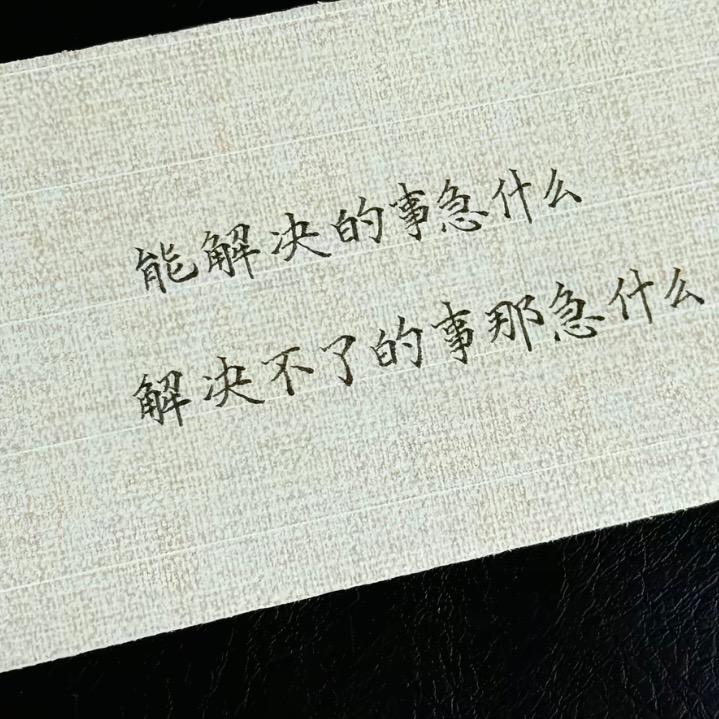 能解决的事急什么
解决不了的事那急什么